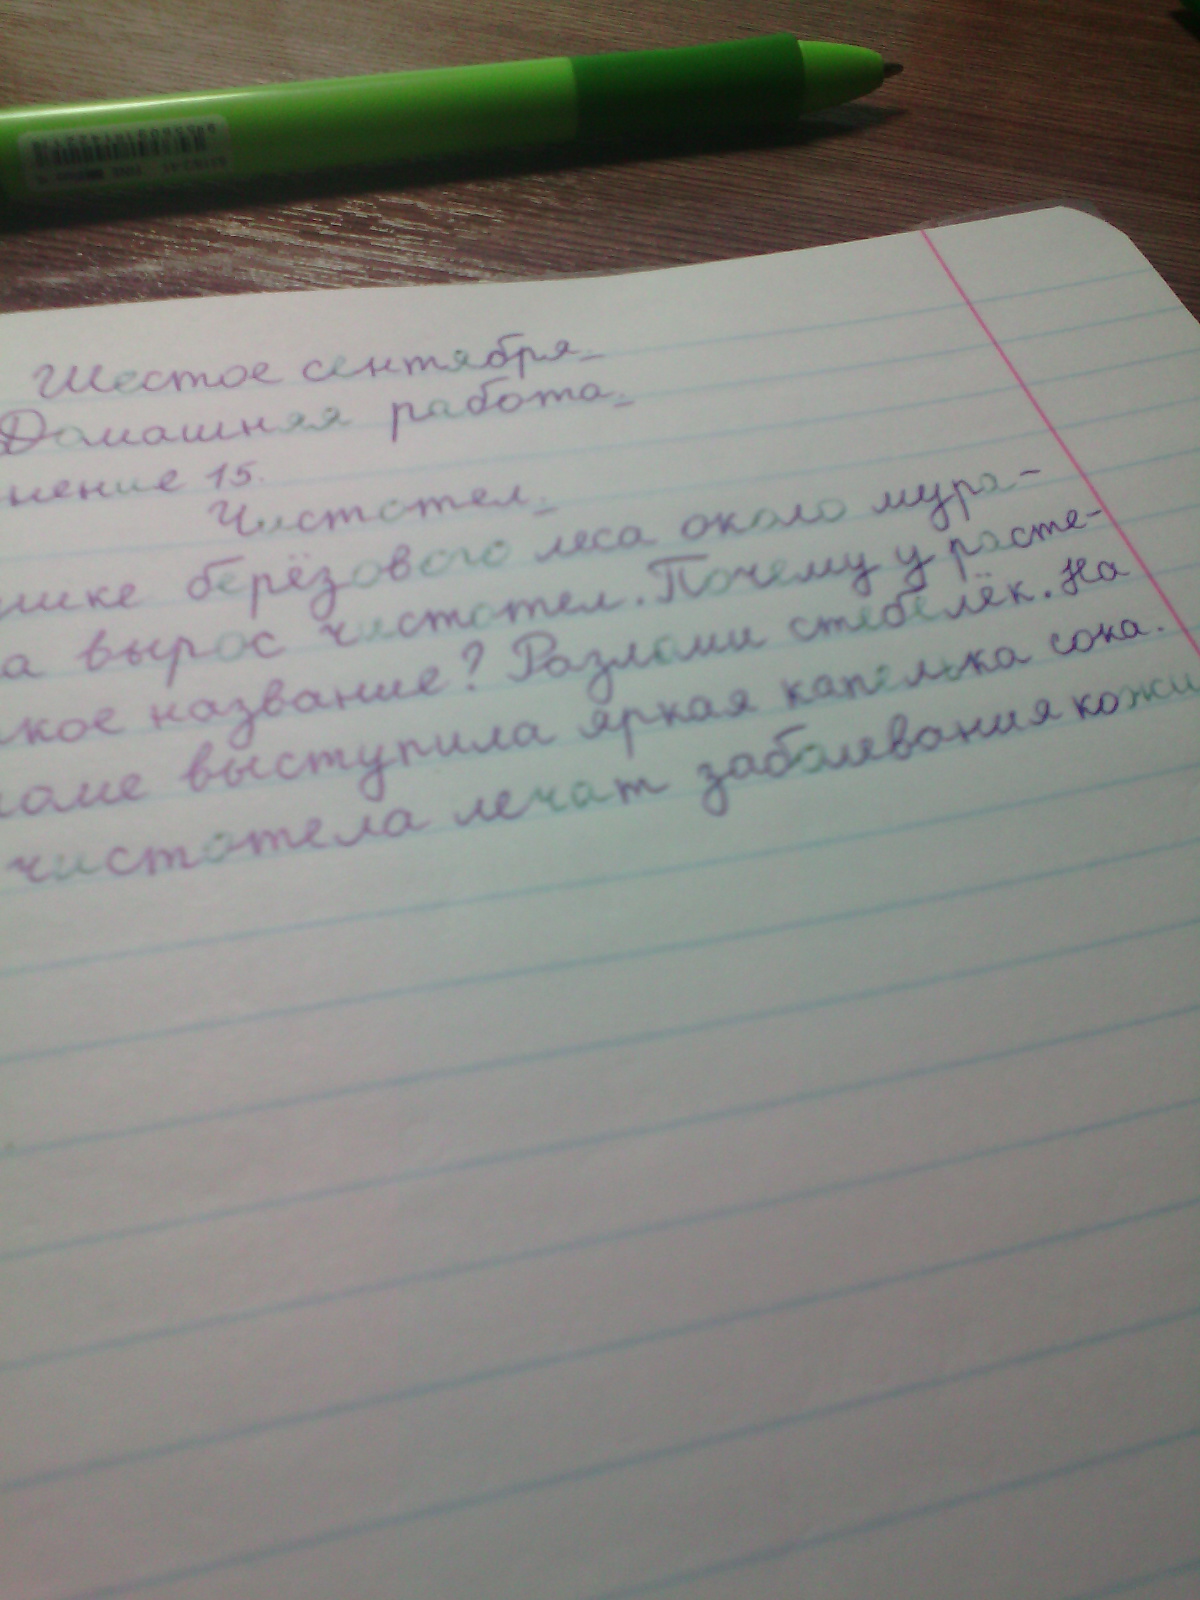 Шестое сентября.
Домашняя работа.
нение 15.
Чистотел.
шке берёзового леса около мура-
а вырос чистотел. Почему у расте-
кое название? Разломи стебелёк. На
ломе выступила яркая капелька сока.
чистотела лечат заболевания кожи